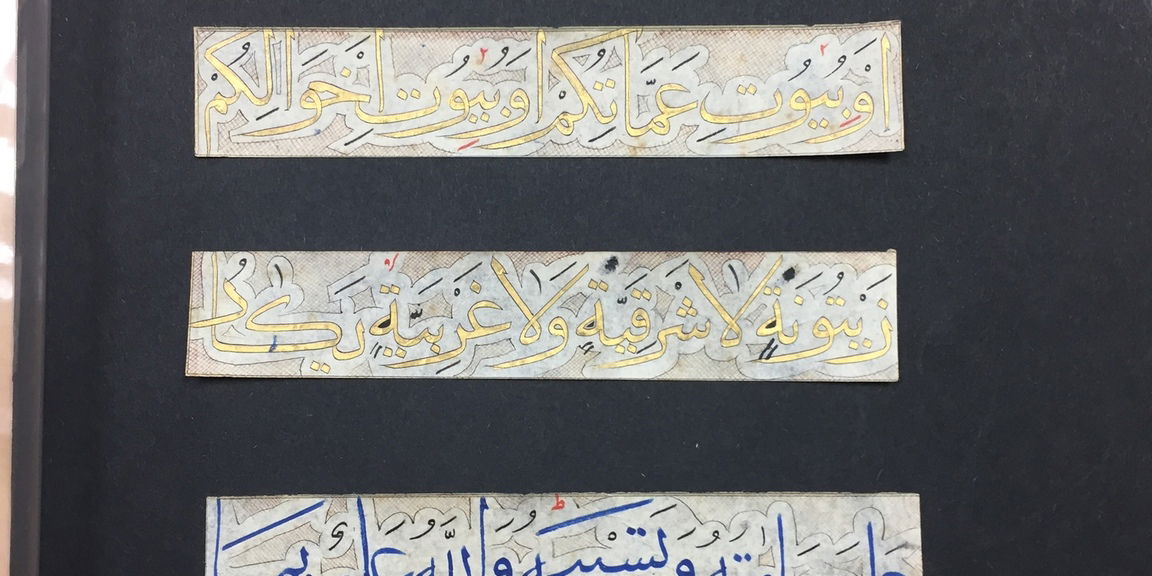 اَوْ بُيُوتِ عَمَّاتِكُمْ اَوْ بُيُوتِ اَخْوَالِكُمْ
زَيْتُونَةٍ لَا شَرْقِيَّةٍ وَلَا غَرْبِيَّةٍ يَكَادُ
وَتَسْبِيحَهُ وَاللَّهُ